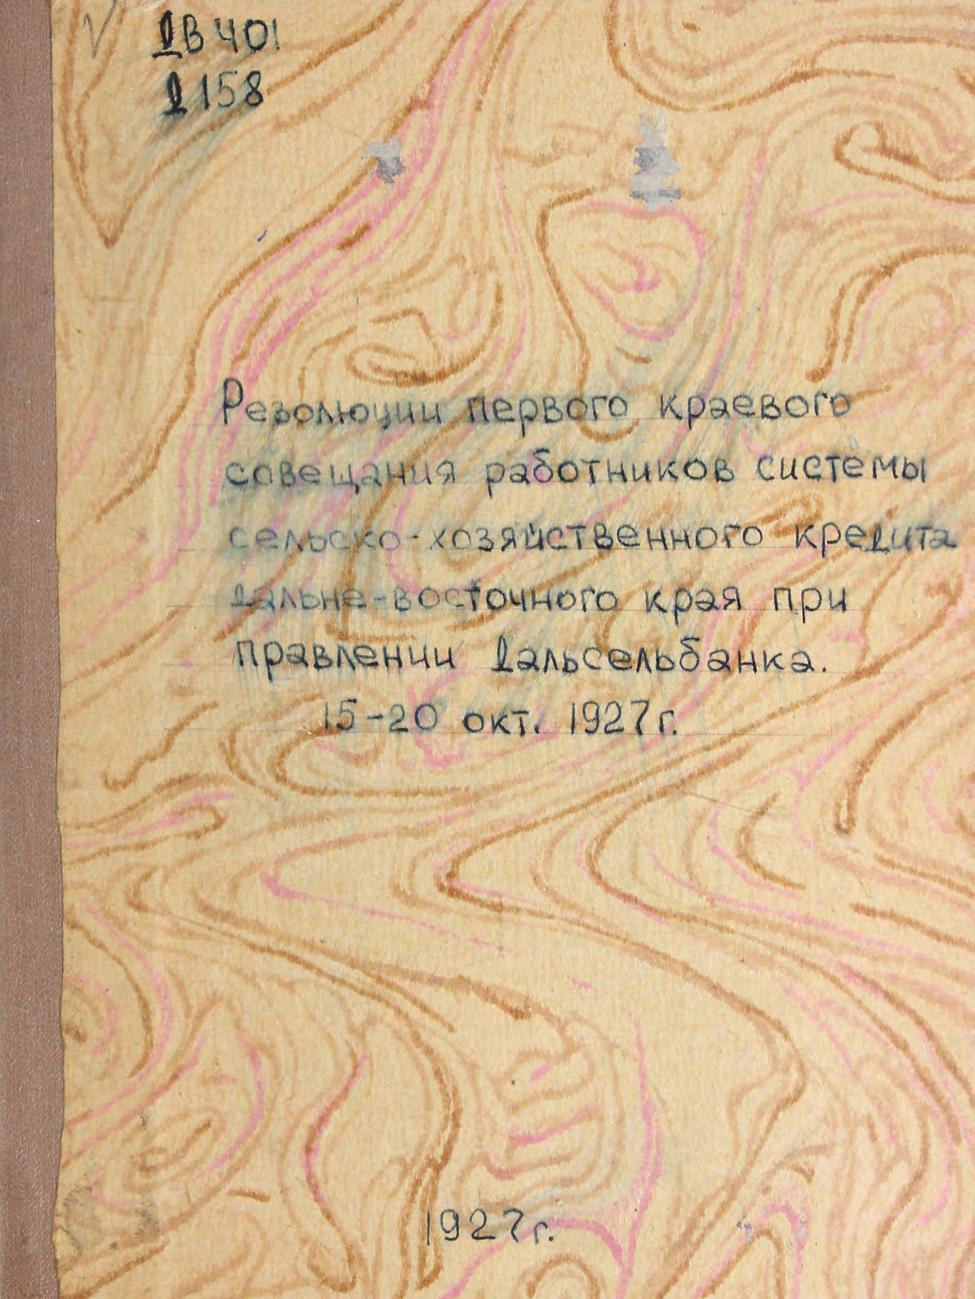 ДВ 401
Д 158
Резолюции первого краевого
совещания работников системы
сельско-хозяйственного кредита
Дальне-восточного края при
правлении Дальсельбанка.
15-20 окт. 1927г.
1927г.